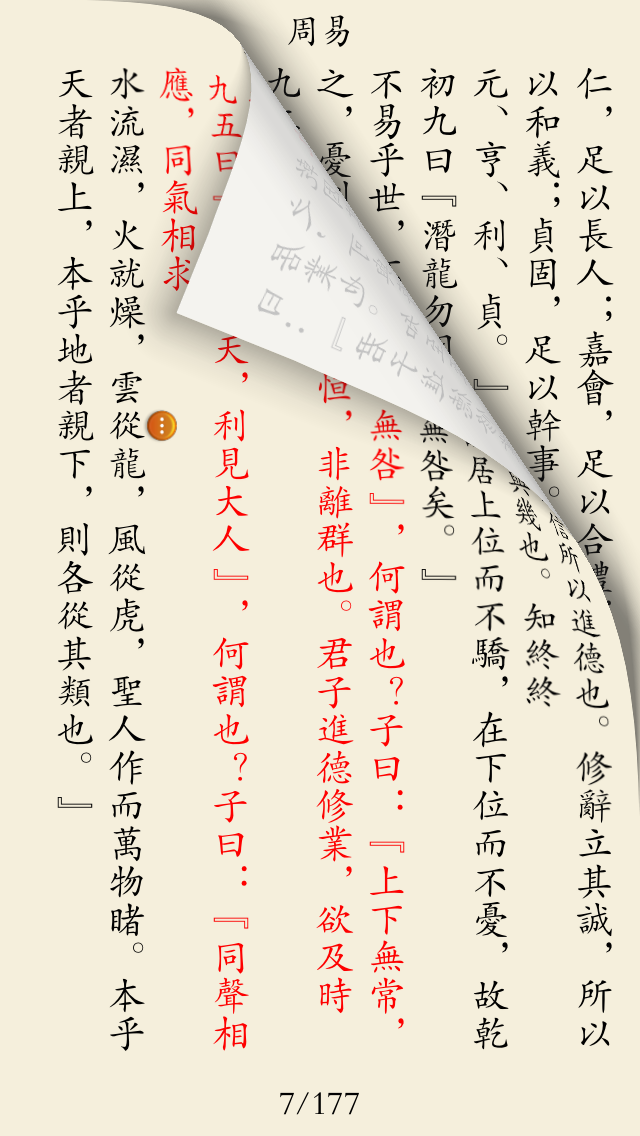 周易
仁，足以長人；嘉會，足以合禮，
信所以進德也。修辭立其誠，所以
以和義；貞固，足以幹事。
與幾也。知終終
元、亨、利、貞。』
居上位而不驕，在下位而不憂，故乾
初九曰『潛龍勿
無咎矣。』
不易乎世，
無咎』，何謂也？子曰：『上下無常，
之，憂
恒，非離群也。君子進德修業，欲及時
九
九五曰『
天，利見大人』，何謂也？子曰：『同聲相
應，同氣相求
水流濕，火就燥，雲從龍，風從虎，聖人作而萬物睹。本乎
天者親上，本乎地者親下，則各從其類也。』
7/177